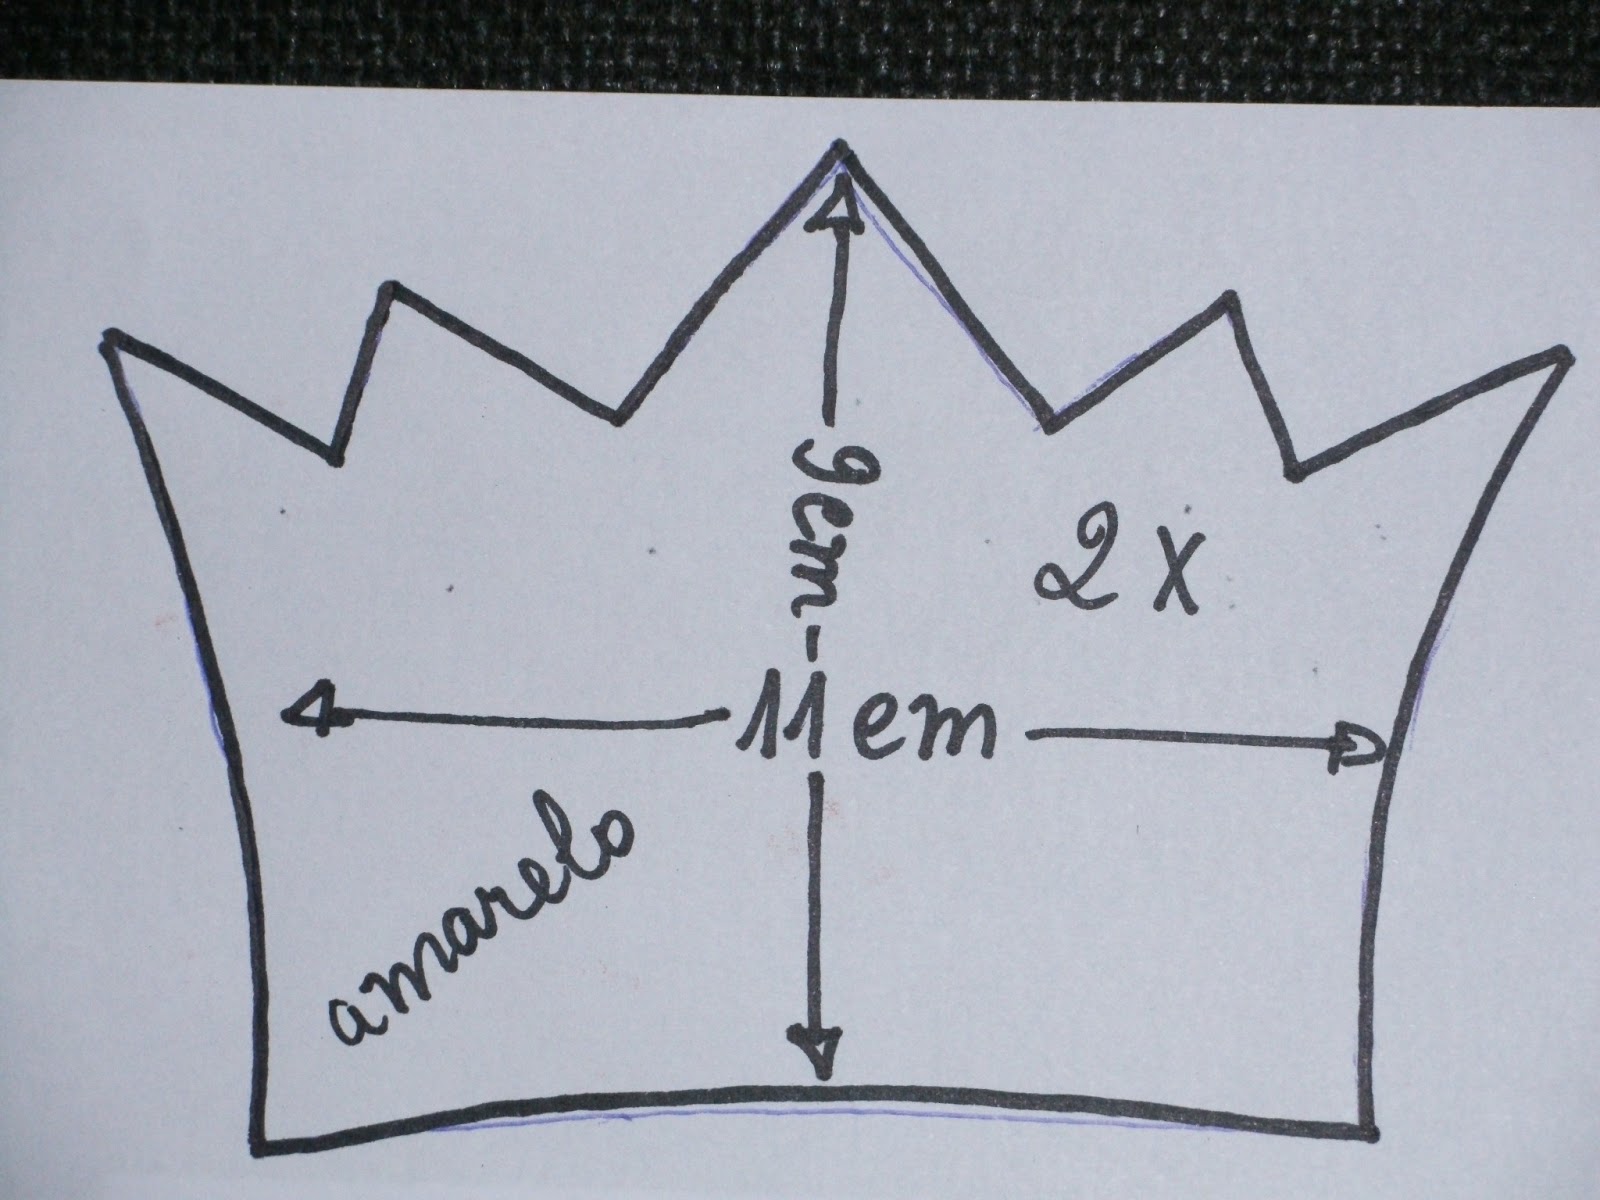 9cm
2 x
11 cm
amarelo